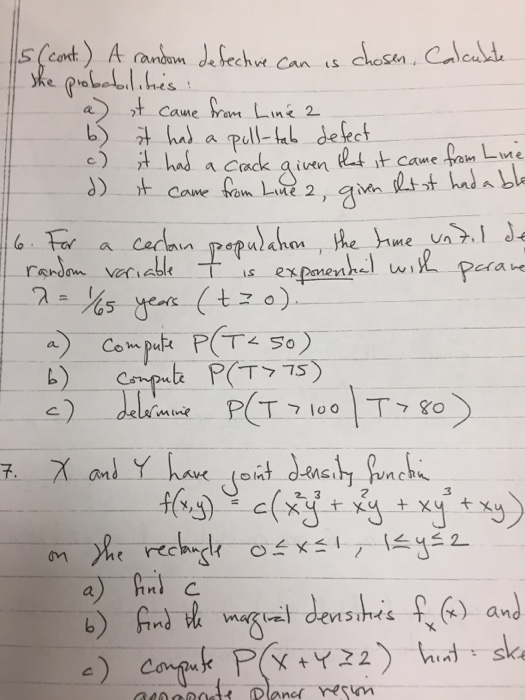 5 (cont.) A random defective can is chosen. Calculate
the probabilities:
a) it came from Line 2
b) it had a pull-tab defect
c) it had a crack given that it came from Line
d) it came from Line 2, given that it had a
6. For a certain population, the time until
random variable T is exponential with
λ = 1/65 years (t ≥ 0).
a) compute P(T < 50)
b) compute P(T > 75)
c) determine P(T > 100 | T > 80)
7. X and Y have joint density function
f(x,y) = c(x²y³ + x²y + xy³ + xy)
on the rectangle 0 ≤ x ≤ 1, 1 ≤ y ≤ 2
a) find c
b) find the marginal densities fₓ(x) and
c) compute P(X + Y ≥ 2) hint:
appropriate planar region